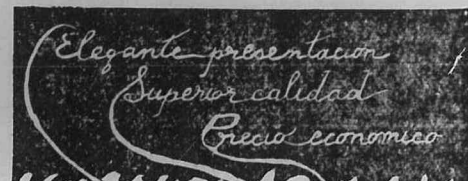 Elegante presentación
Superior calidad
Precio economico